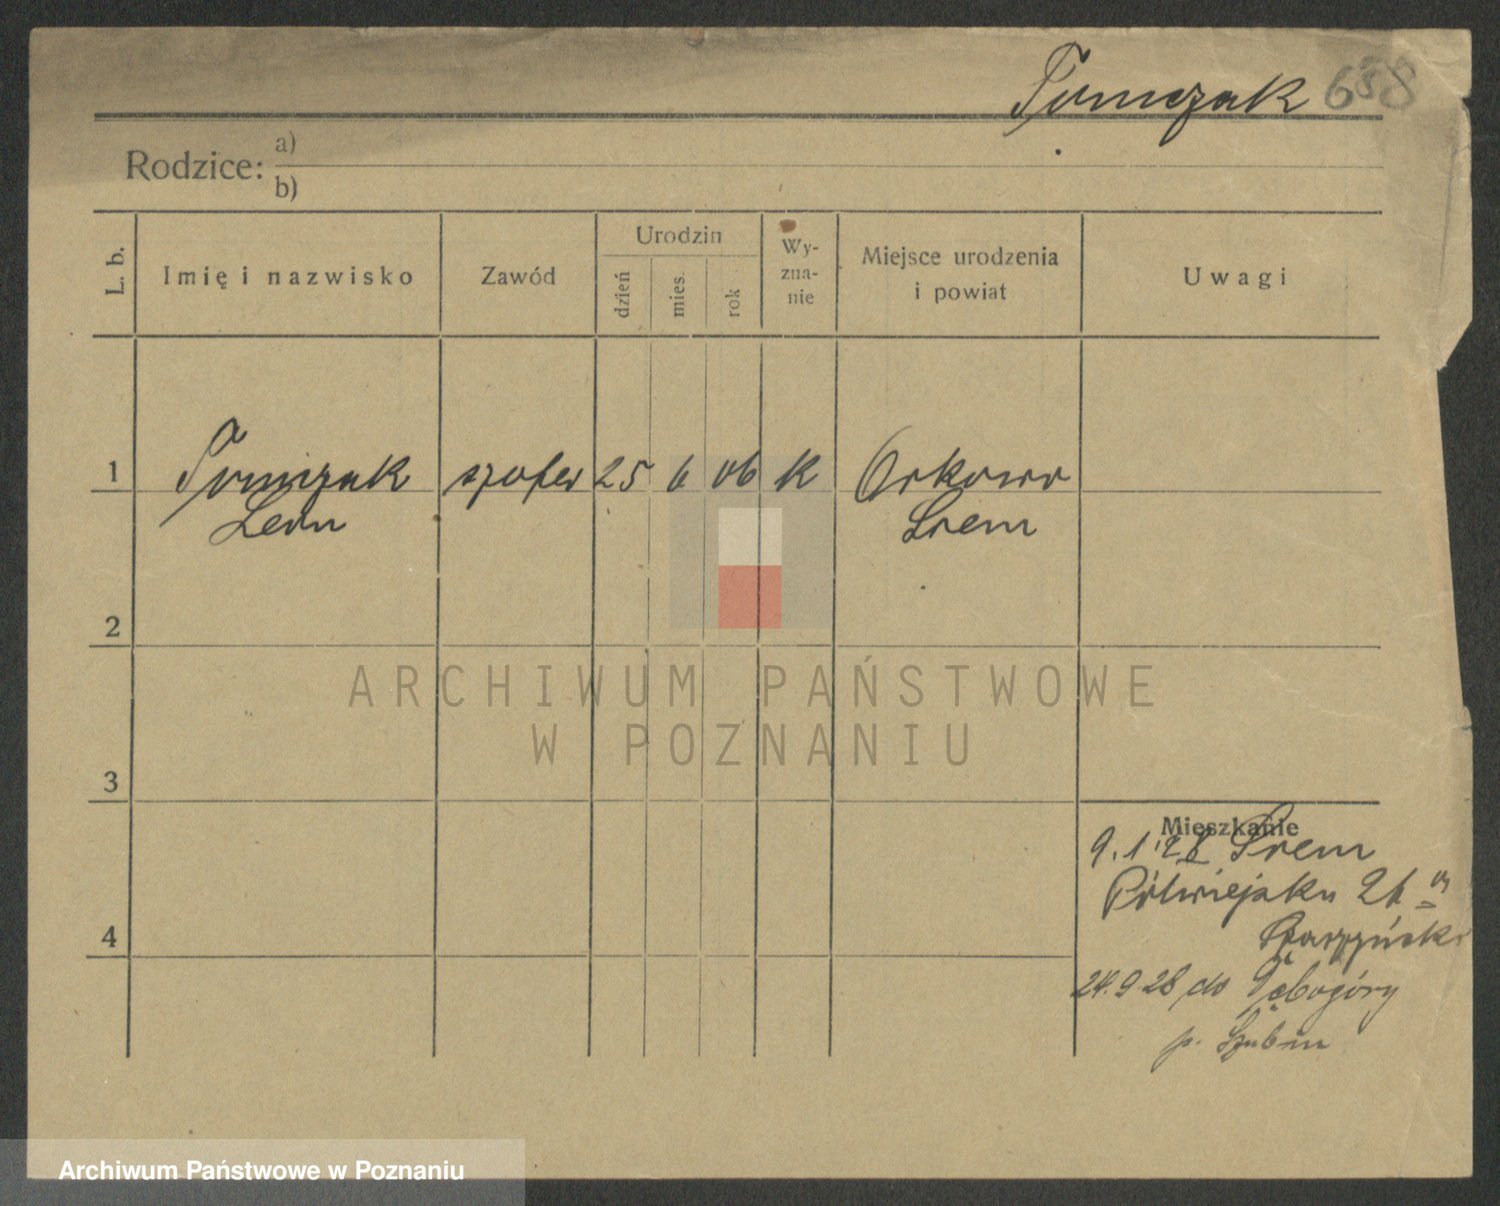 Tomczak 658
Rodzice: a)
b)
L. b.
Imię i nazwisko
Zawód
Urodzin
dzień
mies.
rok
Wy-
zna-
nie
Miejsce urodzenia
i powiat
Uwagi
1 Tomczak szofer 25 6 06 K Orkowo
Leon Śrem
2
3
4
Mieszkanie
9.1.28 Śrem
Półwiejska
24.9.28 do
p. Szubin
ARCHIWUM PAŃSTWOWE
W POZNANIU
Archiwum Państwowe w Poznaniu